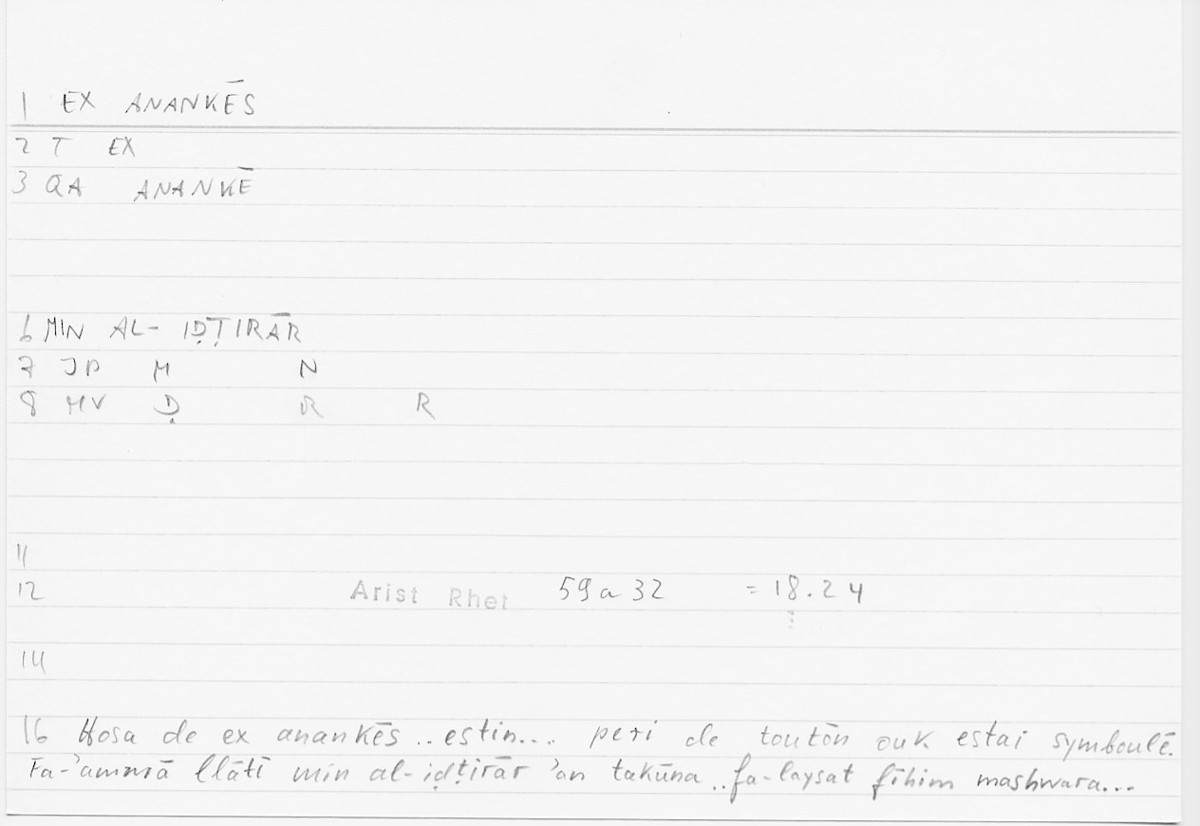 1 EX ANANKĒS
2 T EX
3 QA ANANKĒ
6 MIN AL- IḌṬIRĀR
7 JP M N
8 MV Ḍ R R
11
12 Arist Rhet 59a32 = 18.24
14
16 Hosa de ex anankēs .. estin... peri de toutōn ouk estai symboulē.
Fa-'ammā llātī min al-iḍṭirār 'an takūna .. fa-laysat fīhim mashwara...